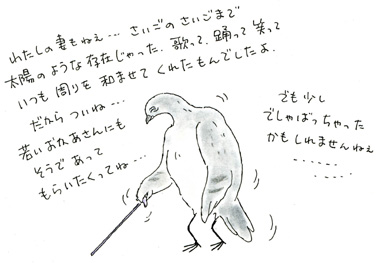 わたしの妻もねぇ… さいごの さいごまで
太陽のような存在じゃった。歌って、踊って 笑って
いつも 周りを 和ませて くれたもんでしたよ。
だから ついね…
若いおかあさんにも
そうで あって
もらいたくってね…
でも少し
でしゃばっちゃった
かもしれませんねぇ
……
……